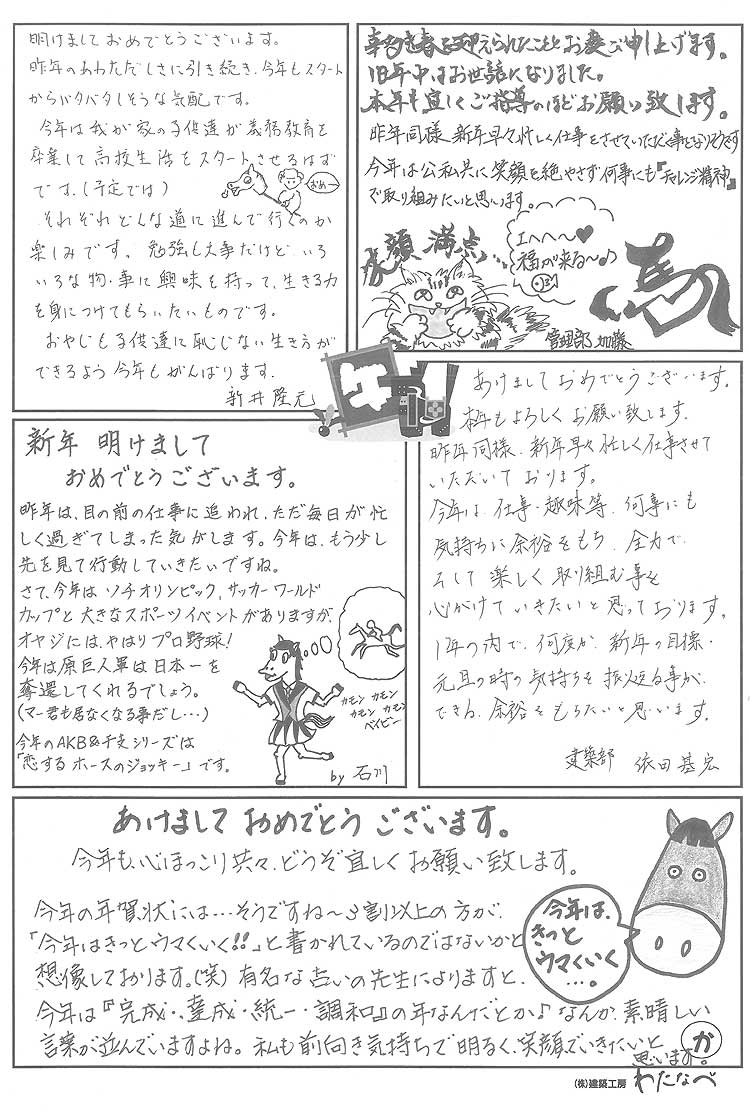 明けましておめでとうございます。
昨年のあわただしさに引き続き、今年もスタート
からバタバタしそうな気配です。
今年は我が家の子供達が義務教育を
卒業して高校生活をスタートさせるはず
です。(予定では)
おめー
それぞれどんな道に進んで行くのか
楽しみです。勉強も大事だけど いろ
いろな物・事に興味を持って、生きる力
を身につけてもらいたいものです。
おやじも子供達に恥じない生き方が
できるよう今年もがんばります。
新井隆元
春を迎えられたこととお慶び申し上げます。
旧年中はお世話になりました。
本年も宜しくご指導のほどお願い致します。
昨年同様、新年早々忙しく仕事をさせていただく事となりそうです
今年は公私共に笑顔を絶やさず何事にも『チャレンジ精神』
で取り組みたいと思います。
笑顔満点…
エヘヘ〜♥
福が来る〜♪
馬
管理部 加藤
午
新年 明けまして
おめでとうございます。
昨年は、目の前の仕事に追われ、ただ毎日が忙
しく過ぎてしまった気がします。今年は、もう少し
先を見て行動していきたいですね。
さて、今年は ソチオリンピック、サッカーワールド
カップと大きなスポーツイベントがありますが、
オヤジには、やはりプロ野球!
今年は原巨人軍は日本一を
奪還してくれるでしょう。
(マー君も居なくなる事だし…)
今年のAKB&干支シリーズは
「恋するホースのジョッキー」です。
カモン カモン
カモン カモン
ベイビー
by 石川
あけましておめでとうございます。
本年もよろしくお願い致します。
昨年同様、新年早々忙しく仕事させて
いただいております。
今年は、仕事・趣味等、何事にも
気持ちに余裕をもち、全力で、
そして楽しく取り組む事を
心がけていきたいと思っております。
1年の内で、何度か、新年の目標・
元旦の時の気持ちを振返る事が、
できる、余裕をもちたいと思います。
建築部 依田基宏
あけまして おめでとう ございます。
今年も、心ほっこり共々、どうぞ宜しくお願い致します。
今年の年賀状には…そうですね〜3割以上の方が、
「今年はきっとウマくいく!!」と書かれているのではないかと
想像しております。(笑) 有名な占いの先生によりますと、
今年は『完成・達成・統一・調和』の年なんだとか♪なんか、素晴しい
言葉が並んでいますよね。私も前向き気持ちで明るく、笑顔でいきたいと
思います。
今年は、
きっと
ウマくいく
…。
か
わたなべ
(株)建築工房